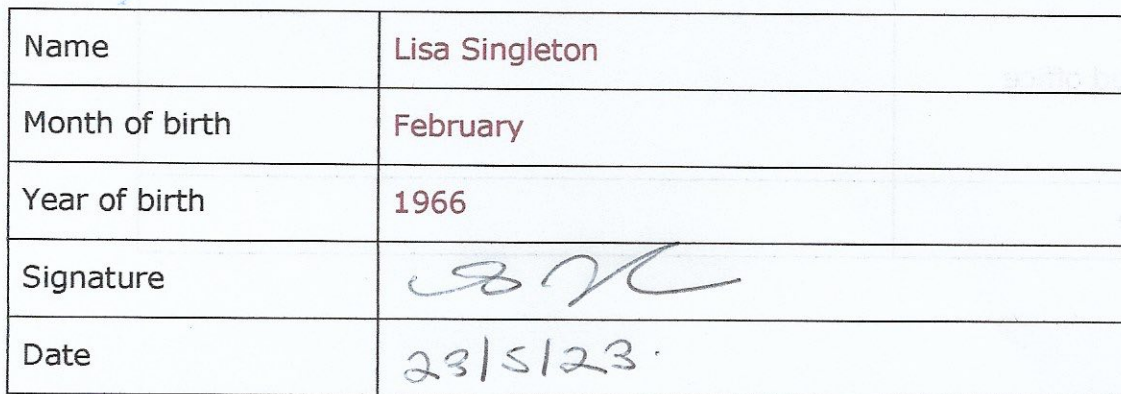 Name Lisa Singleton
Month of birth February
Year of birth 1966
Signature
Date 23/5/23.